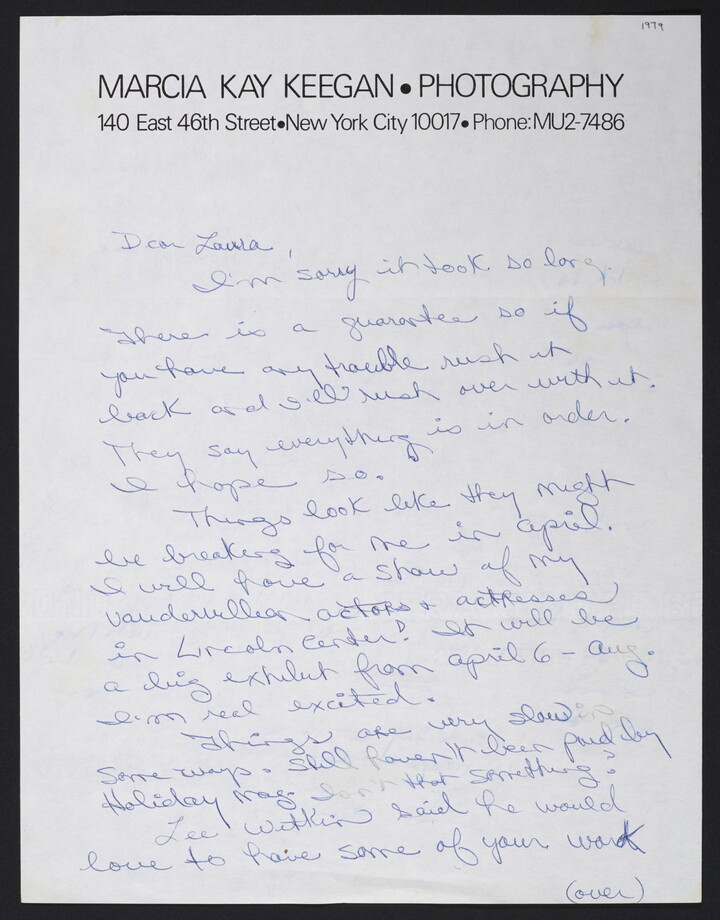 1979
MARCIA KAY KEEGAN • PHOTOGRAPHY
140 East 46th Street•New York City 10017• Phone:MU2-7486
Dear Laura,
I'm sorry it took so long.
There is a guarantee so if
you have any trouble rush it
back and I'll rush over with it.
They say everything is in order.
I hope so.
Things look like they might
be breaking for me in april.
I will have a show of my
vaudevillian actors & actresses
in Lincoln Center! It will be
a big exhibit from april 6 – aug.
I'm real excited.
Things are very slow in
some ways. Still haven't been paid by
Holiday mag. Isn't that something?
Lee Witkin said he would
love to have some of your work
(over)